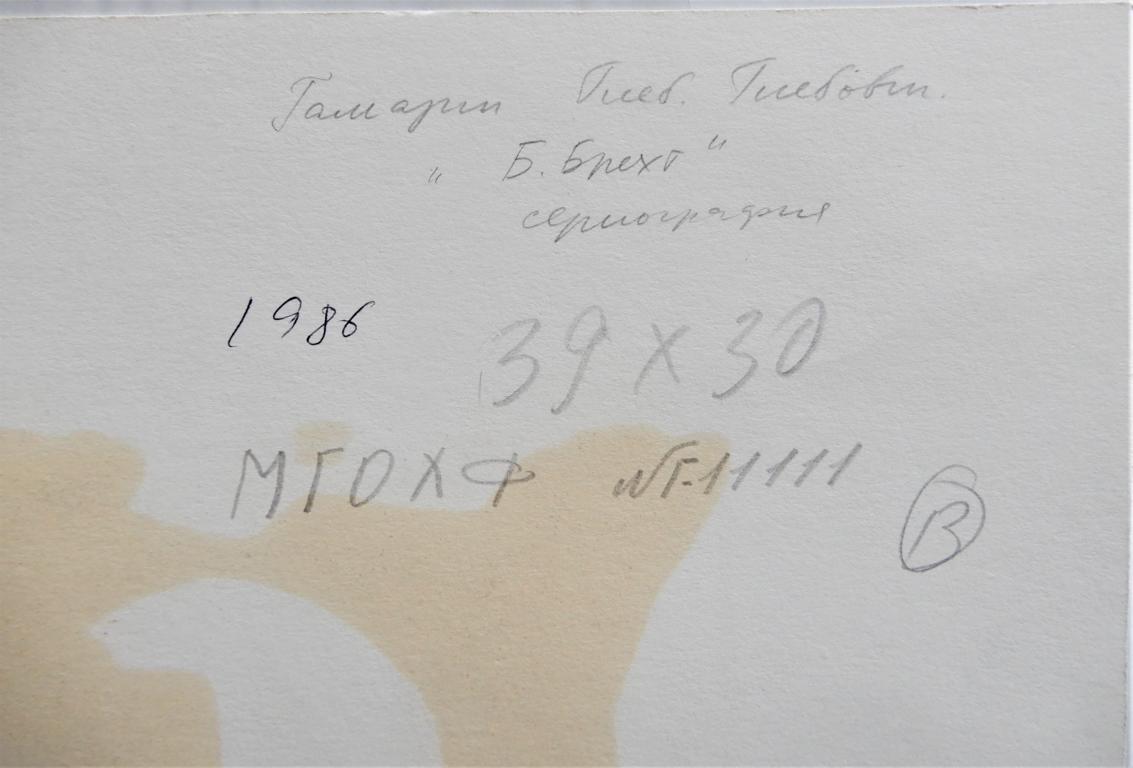 Гамарин Глеб. Глебович.
"Б. Брехт"
сериография
1986 39 X 30
МГОХФ №Г-11111
В